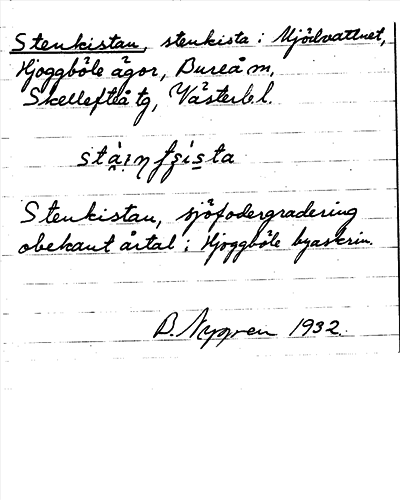 Stenkistan, stenkista i Mjödvattnet,
Hjoggböle ägor, Bureå m,
Skellefteå tg, Västerb l.
Stenkistan, sjöfodergradering
obekant årtal i Hjoggböle byaskrin.
B. Nygren 1932.